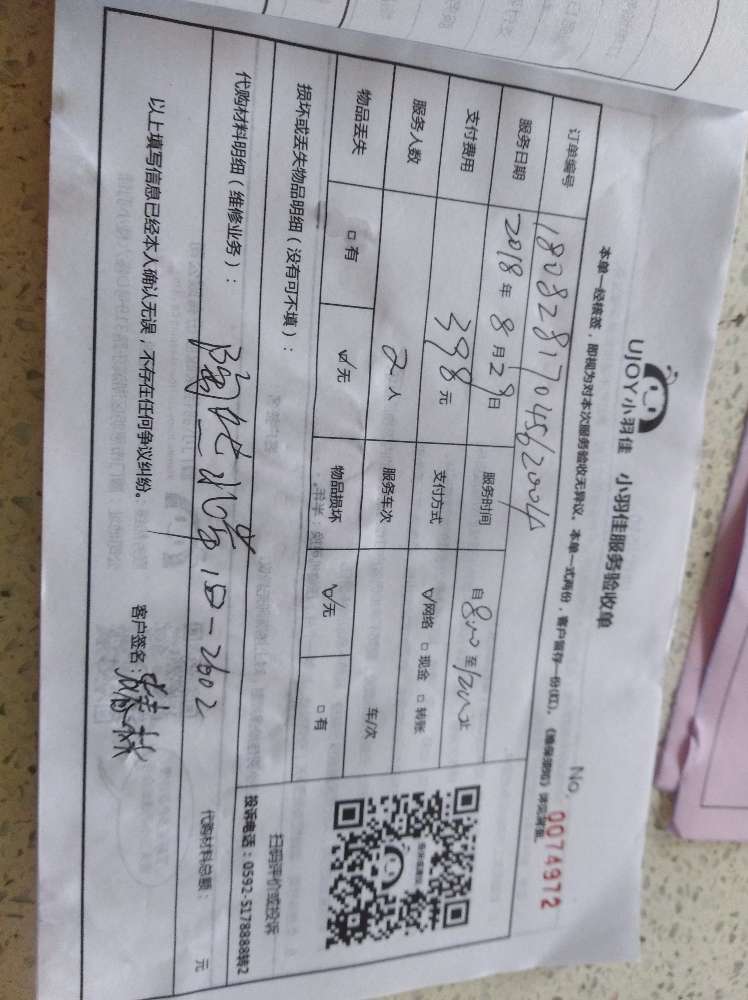 UJOY小羽佳 小羽佳服务验收单
No. 0074972
本单一经核签，即视为对本次服务验收无异议。本单一式两份，客户留存一份(红)。
订单编号 180828170456200
服务日期 2018年8月29日 服务时间 自8:00至12:00止
支付费用 398元 支付方式 ☑网络 □现金 □转账
服务人数 2人 服务车次 车/次
物品丢失 □有 ☑无 物品损坏 ☑无 □有
损坏或丢失物品明细（没有可不填）：
代购材料明细（维修业务）： 代购材料总额： 元
-2602
以上填写信息已经本人确认无误，不存在任何争议纠纷。 客户签名：
扫码评价或投诉
投诉电话：0592-5178888转2